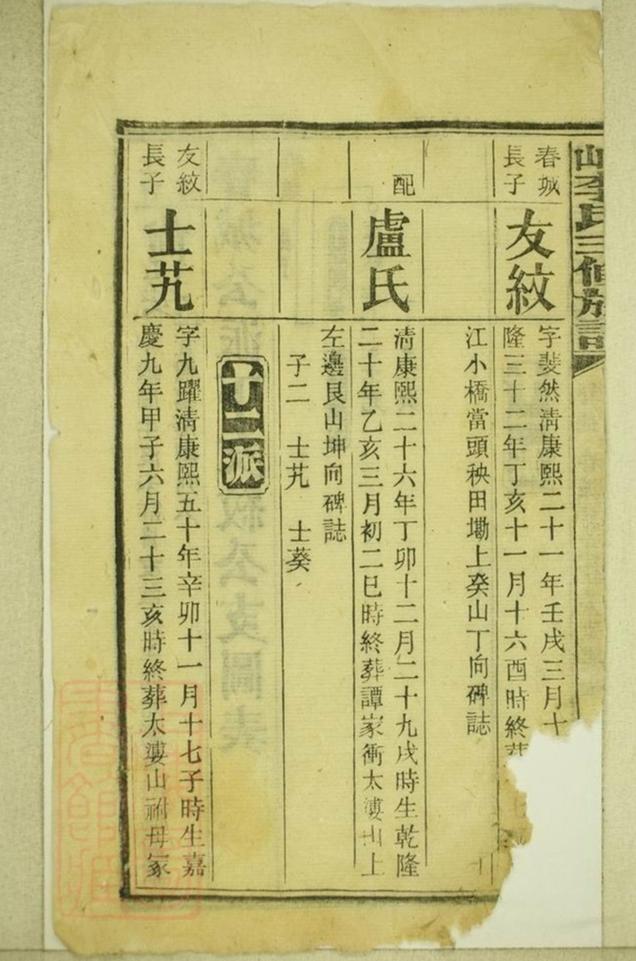 山李氏三修族譜
春城
長子
友紋
字斐然清康熙二十一年壬戌三月十
隆三十二年丁亥十一月十六酉時終葬
江小橋當頭秧田墈上癸山丁向碑誌
配
盧氏
清康熙二十六年丁卯十二月二十九戌時生乾隆
二十年乙亥三月初二巳時終葬譚家衝太漊山上
左邊艮山坤向碑誌
子二 士艽 士葵
十二派
友紋
長子
士艽
字九躍清康熙五十年辛卯十一月十七子時生嘉
慶九年甲子六月二十三亥時終葬太漊山祔母冢